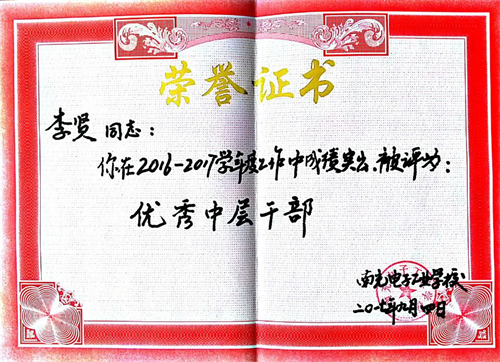 荣誉证书
李贤同志：
你在2016-2017学年度工作中成绩突出、被评为：
优秀中层干部
南充电子工业学校
二〇一七年九月四日